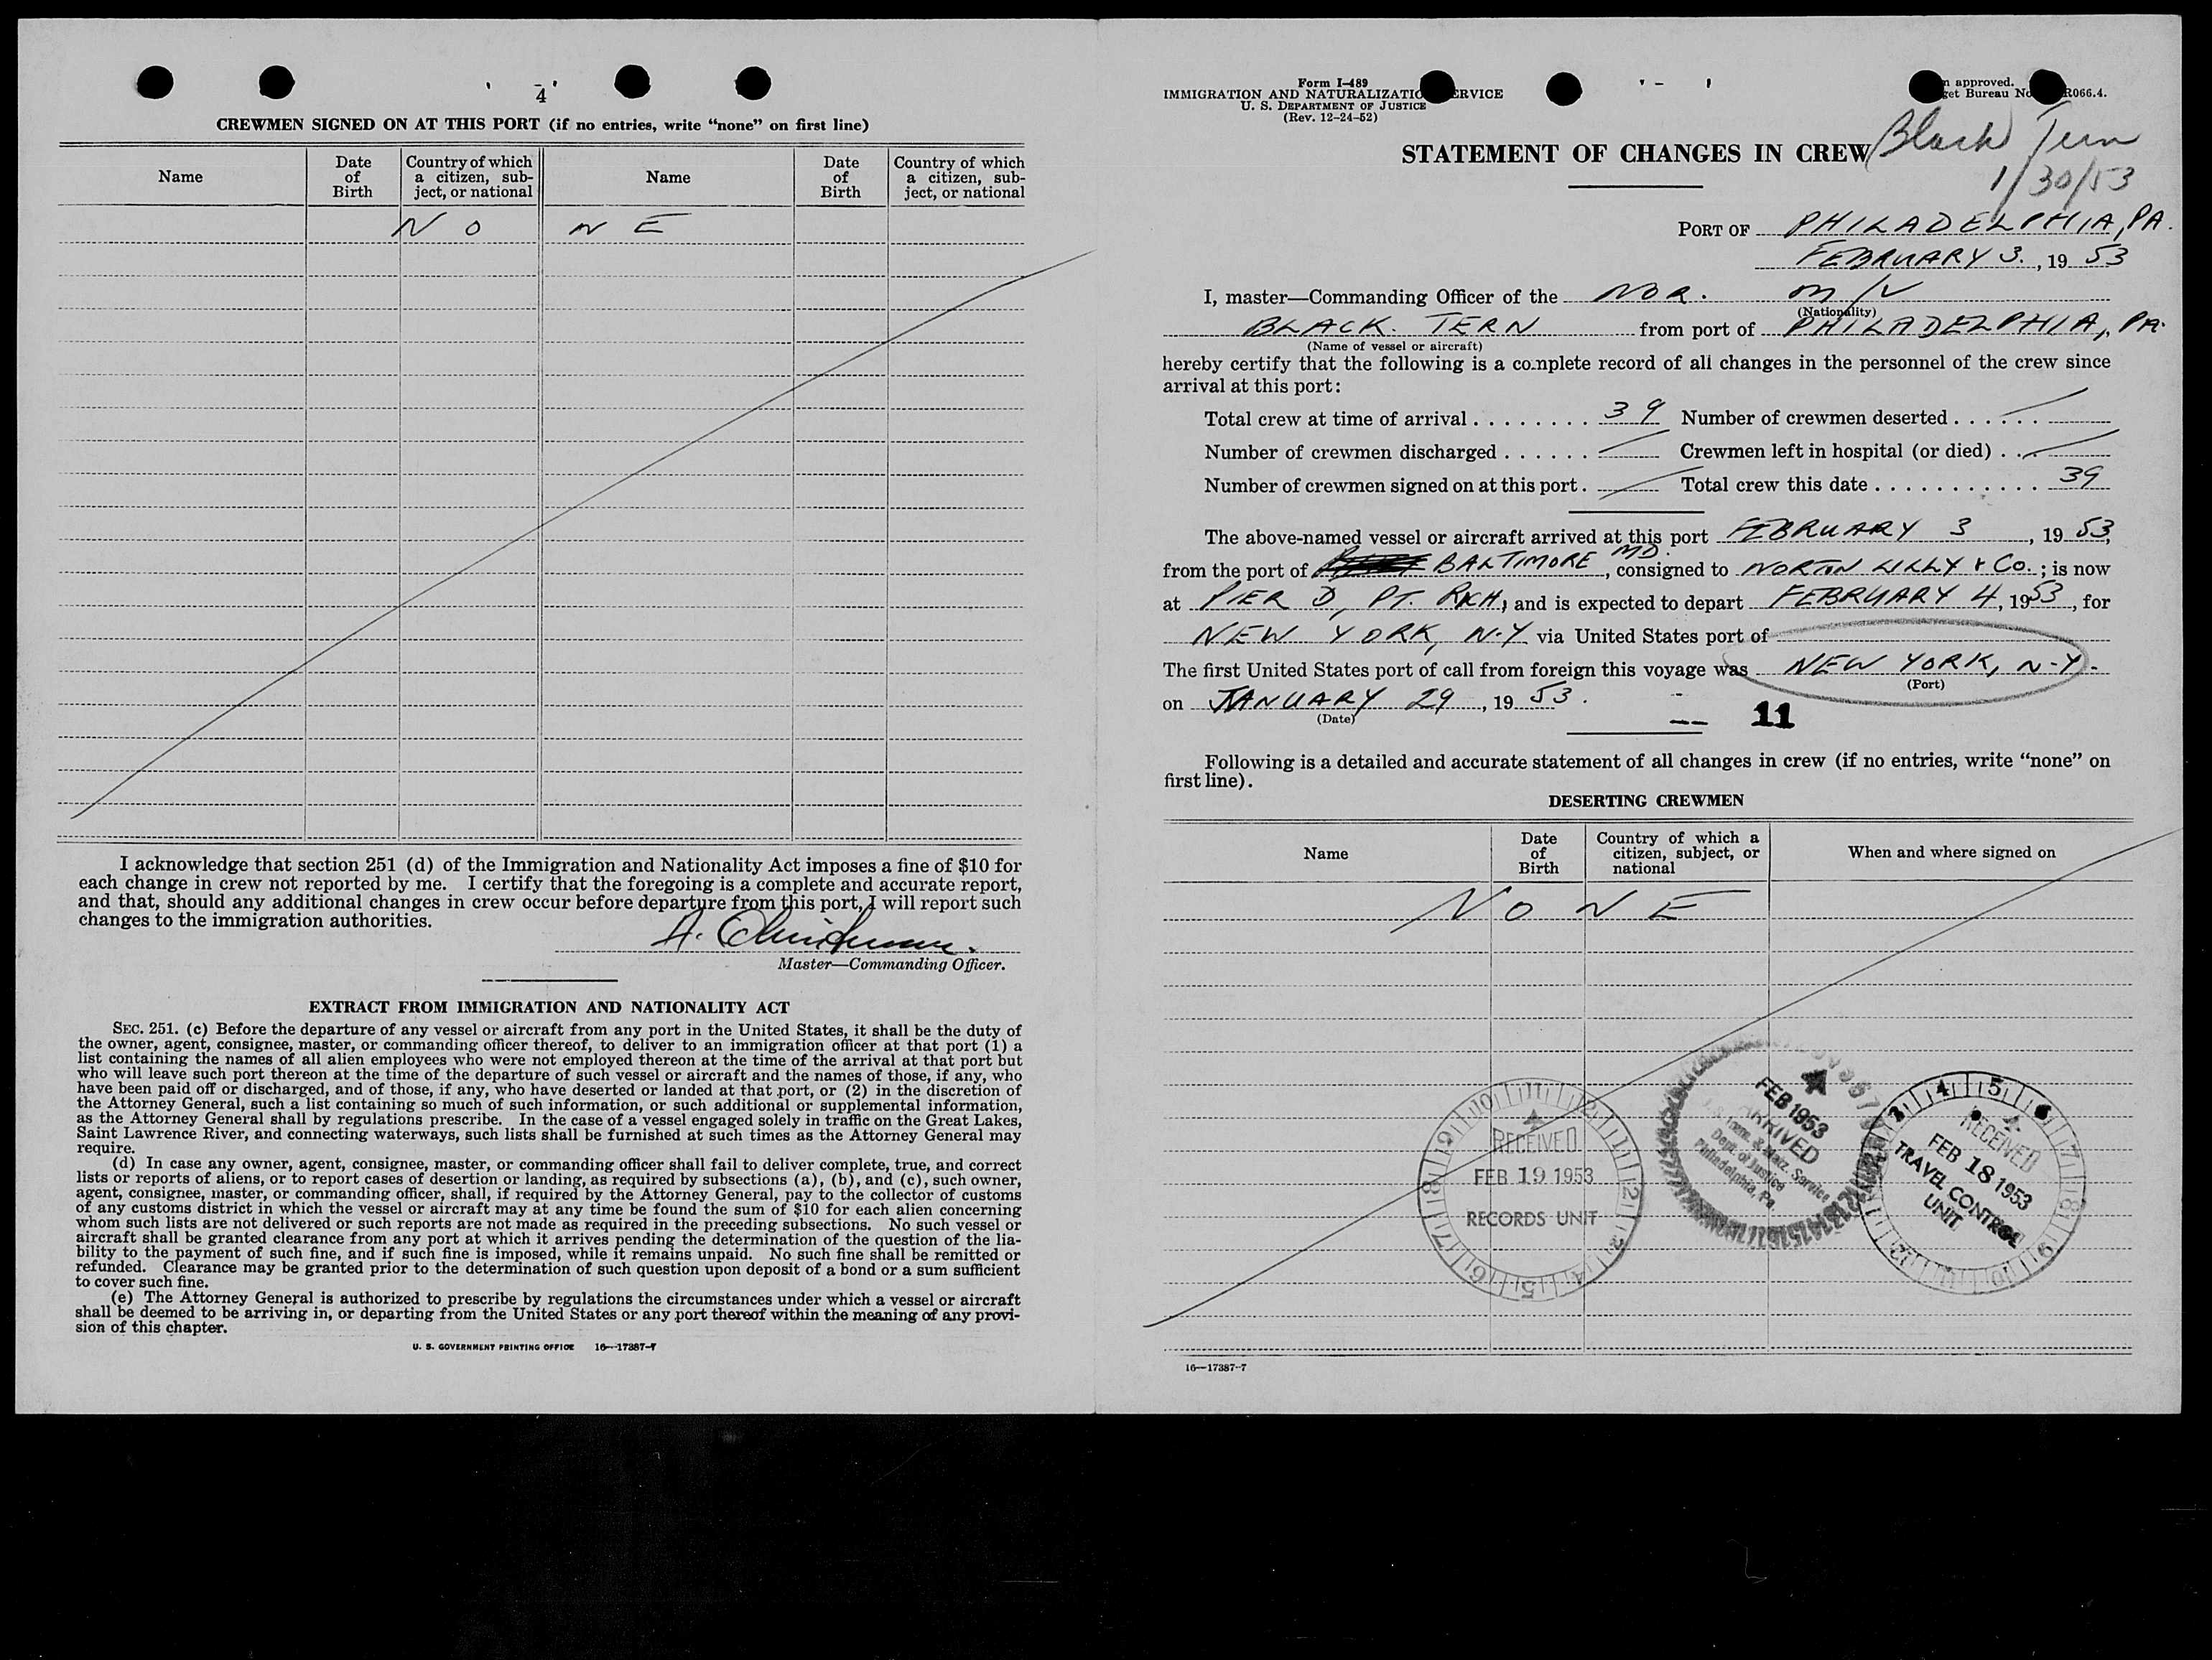 4
CREWMEN SIGNED ON AT THIS PORT (if no entries, write “none” on first line)
Name
Date of Birth
Country of which a citizen, subject, or national
Name
Date of Birth
Country of which a citizen, subject, or national
N O N E
I acknowledge that section 251 (d) of the Immigration and Nationality Act imposes a fine of $10 for
each change in crew not reported by me. I certify that the foregoing is a complete and accurate report,
and that, should any additional changes in crew occur before departure from this port, I will report such
changes to the immigration authorities.
A.
Master—Commanding Officer.
EXTRACT FROM IMMIGRATION AND NATIONALITY ACT
SEC. 251. (c) Before the departure of any vessel or aircraft from any port in the United States, it shall be the duty of
the owner, agent, consignee, master, or commanding officer thereof, to deliver to an immigration officer at that port (1) a
list containing the names of all alien employees who were not employed thereon at the time of the arrival at that port but
who will leave such port thereon at the time of the departure of such vessel or aircraft and the names of those, if any, who
have been paid off or discharged, and of those, if any, who have deserted or landed at that port, or (2) in the discretion of
the Attorney General, such a list containing so much of such information, or such additional or supplemental information,
as the Attorney General shall by regulations prescribe. In the case of a vessel engaged solely in traffic on the Great Lakes,
Saint Lawrence River, and connecting waterways, such lists shall be furnished at such times as the Attorney General may
require.
(d) In case any owner, agent, consignee, master, or commanding officer shall fail to deliver complete, true, and correct
lists or reports of aliens, or to report cases of desertion or landing, as required by subsections (a), (b), and (c), such owner,
agent, consignee, master, or commanding officer, shall, if required by the Attorney General, pay to the collector of customs
of any customs district in which the vessel or aircraft may at any time be found the sum of $10 for each alien concerning
whom such lists are not delivered or such reports are not made as required in the preceding subsections. No such vessel or
aircraft shall be granted clearance from any port at which it arrives pending the determination of the question of the lia-
bility to the payment of such fine, and if such fine is imposed, while it remains unpaid. No such fine shall be remitted or
refunded. Clearance may be granted prior to the determination of such question upon deposit of a bond or a sum sufficient
to cover such fine.
(e) The Attorney General is authorized to prescribe by regulations the circumstances under which a vessel or aircraft
shall be deemed to be arriving in, or departing from the United States or any port thereof within the meaning of any provi-
sion of this chapter.
U. S. GOVERNMENT PRINTING OFFICE 16—17387-7
Form I-489
IMMIGRATION AND NATURALIZATIO RVICE
U. S. DEPARTMENT OF JUSTICE
(Rev. 12-24-52)
approved.
et Bureau No R066.4.
STATEMENT OF CHANGES IN CREW
Black Tern
1/30/53
PORT OF PHILADELPHIA, PA.
FEBRUARY 3., 19 53
I, master—Commanding Officer of the NOR. M/V
(Nationality)
BLACK TERN from port of PHILADELPHIA, PA.
(Name of vessel or aircraft)
hereby certify that the following is a complete record of all changes in the personnel of the crew since
arrival at this port:
Total crew at time of arrival . . . . . . . . 39 Number of crewmen deserted . . . . . .
Number of crewmen discharged . . . . . . Crewmen left in hospital (or died) . . .
Number of crewmen signed on at this port . Total crew this date . . . . . . . . . . . 39
The above-named vessel or aircraft arrived at this port FEBRUARY 3, 19 53,
from the port of BALTIMORE MD., consigned to NORTON LILLY & CO.; is now
at PIER D, PT. RICH, and is expected to depart FEBRUARY 4, 1953, for
NEW YORK, N.Y. via United States port of
The first United States port of call from foreign this voyage was NEW YORK, N-Y.
(Port)
on JANUARY 29, 19 53.
(Date)
11
Following is a detailed and accurate statement of all changes in crew (if no entries, write “none” on
first line).
DESERTING CREWMEN
Name
Date of Birth
Country of which a citizen, subject, or national
When and where signed on
N O N E
RECEIVED
FEB 19 1953
RECORDS UNIT
FEB 1953
ARRIVED
Imm. & Natz. Service
Dept. of Justice
Philadelphia, Pa
RECEIVED
FEB 18 1953
TRAVEL CONTROL
UNIT
16—17387-7